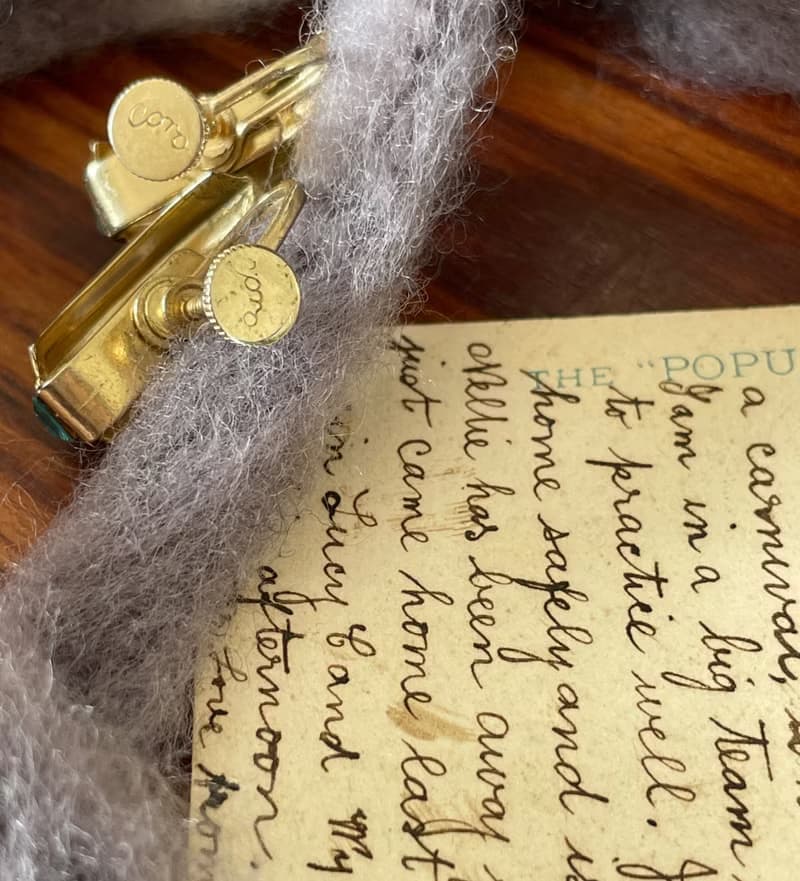 Coro
Coro
THE "POPU
a carnival,
I am in a big team
to practice well. I
home safely and is
Nellie has been away
just came home last
in Lucy and My
afternoon.
Love from